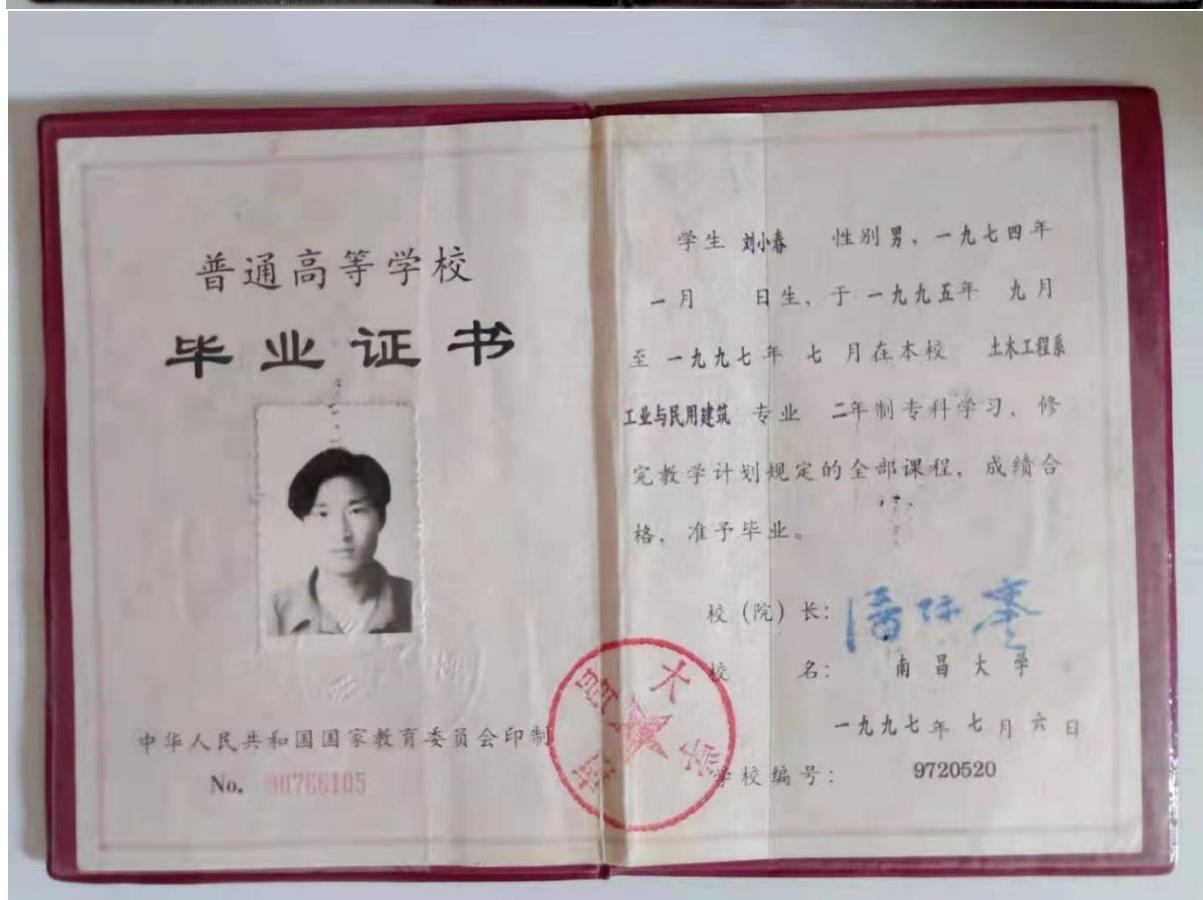 普通高等学校
毕业证书
中华人民共和国国家教育委员会印制
No. 90766105
学生 刘小春 性别男，一九七四年
一月 日生，于一九九五年 九月
至一九九七年 七月在本校 土木工程系
工业与民用建筑 专业 二年制专科学习，修
完教学计划规定的全部课程，成绩合
格，准予毕业。
校（院）长：
校 名： 南昌大学
一九九七年七月六日
学校编号： 9720520
南昌大学